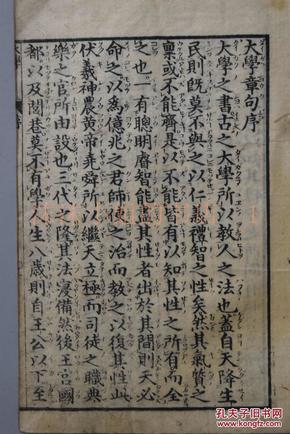 大學章句序
大學之書古之大學所以教人之法也蓋自天降生
民則既莫不與之以仁義禮智之性矣然其氣質之
稟或不能齊是以不能皆有以知其性之所有而全
之也一有聰明睿智能盡其性者出於其閒則天必
命之以爲億兆之君師使之治而教之以復其性此
伏羲神農黃帝堯舜所以繼天立極而司徒之職典
樂之官所由設也三代之隆其法寖備然後王宮國
都以及閭巷莫不有學人生八歲則自王公以下至